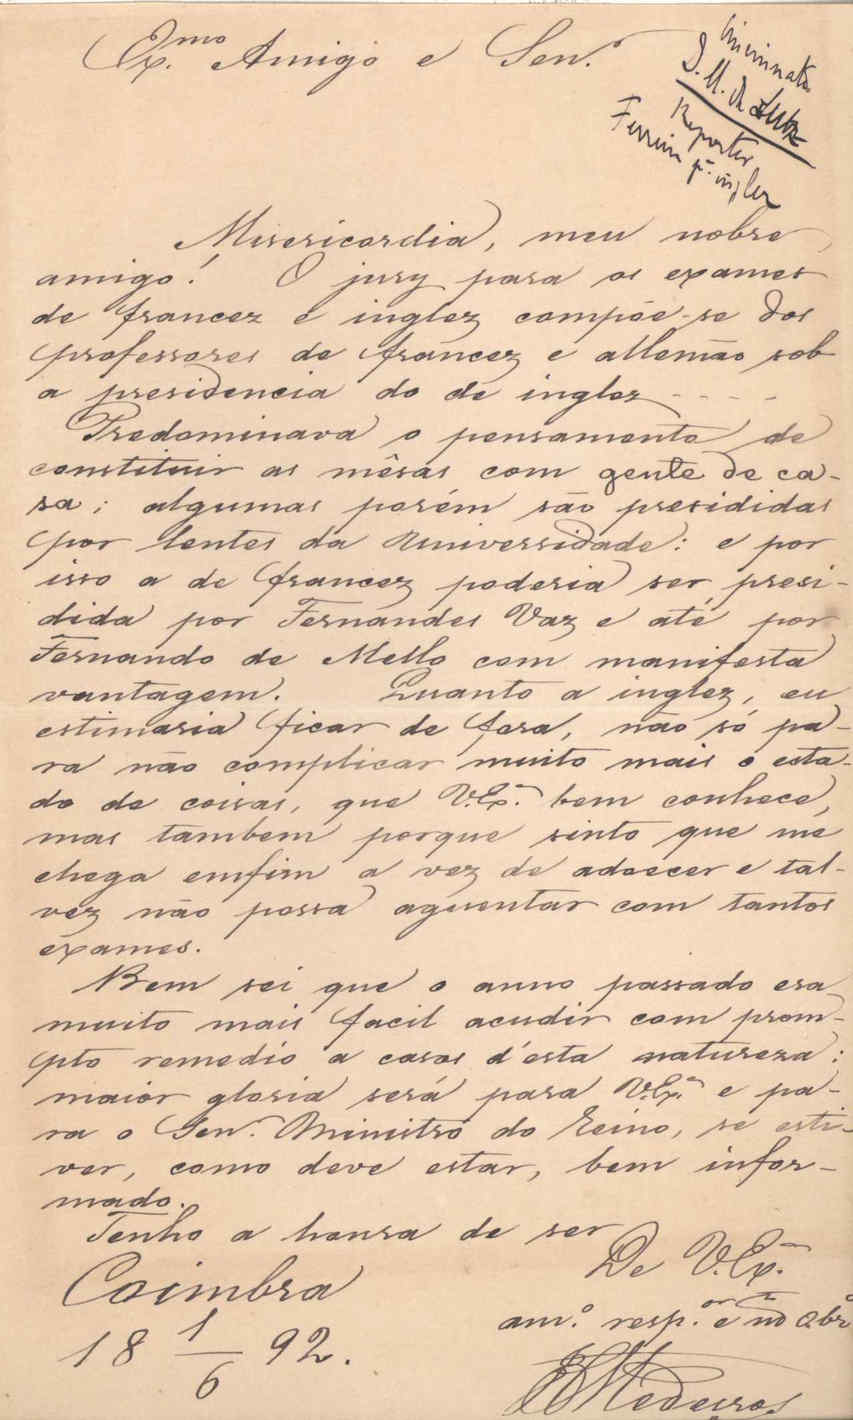 Ex.mo Amigo e Sen.r
Cincinnato
Reporter
Misericordia, meu nobre
amigo! O jury para os exames
de francez e inglez compõe-se dos
professores de francez e allemão sob
a presidencia do de inglez - - - -
Predominava o pensamento de
constituir as mêsas com gente de ca-
sa; algumas porém são presididas
por lentes da Universidade: e por
isso a de francez poderia ser presi-
dida por Fernandes Vaz e até por
Fernando de Mello com manifesta
vantagem. Quanto a inglez, eu
estimaria ficar de fora, não só pa-
ra não complicar muito mais o esta-
do de coisas, que V.Ex.ª bem conhece,
mas tambem porque sinto que me
chega emfim a vez de adoecer e tal-
vez não possa aguentar com tantos
exames.
Bem sei que o anno passado era
muito mais facil acudir com prom-
pto remedio a casos d'esta natureza:
maior gloria será para V.Ex.ª e pa-
ra o Sen.r Ministro do Reino, se esti-
ver, como deve estar, bem infor-
mado.
Tenho a honra de ser
De V.Ex.ª
Coimbra
am.º resp.or e m.to obr.º
18 1/6 92.
Medeiros